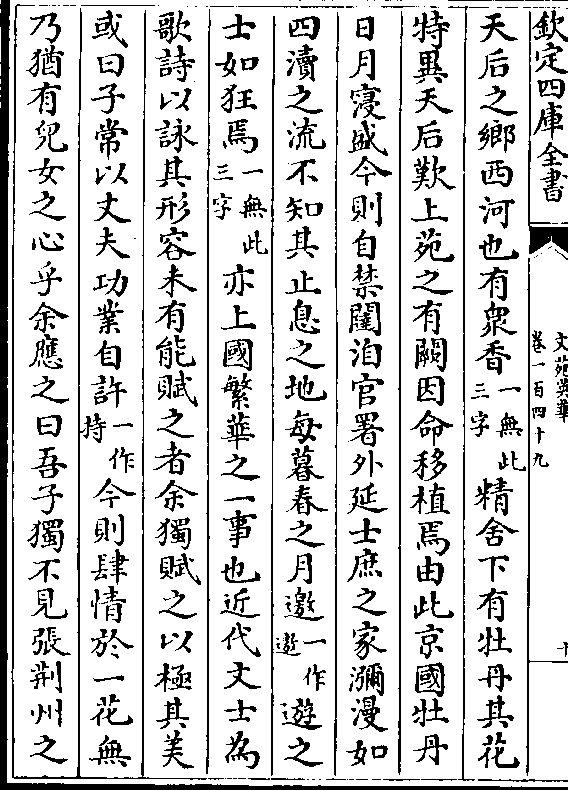 欽定四庫全書
文苑英華
卷一百四十九
十
天后之鄉西河也有衆香一無此三字精舍下有牡丹其花
特異天后歎上苑之有闕因命移植焉由此京國牡丹
日月寖盛今則自禁闥洎官署外延士庶之家瀰漫如
四瀆之流不知其止息之地每暮春之月邀一作遨遊之
士如狂焉一無此三字亦上國繁華之一事也近代文士為
歌詩以詠其形容未有能賦之者余獨賦之以極其美
或曰子常以丈夫功業自許一作持今則肆情於一花無
乃猶有兒女之心乎余應之曰吾子獨不見張荆州之